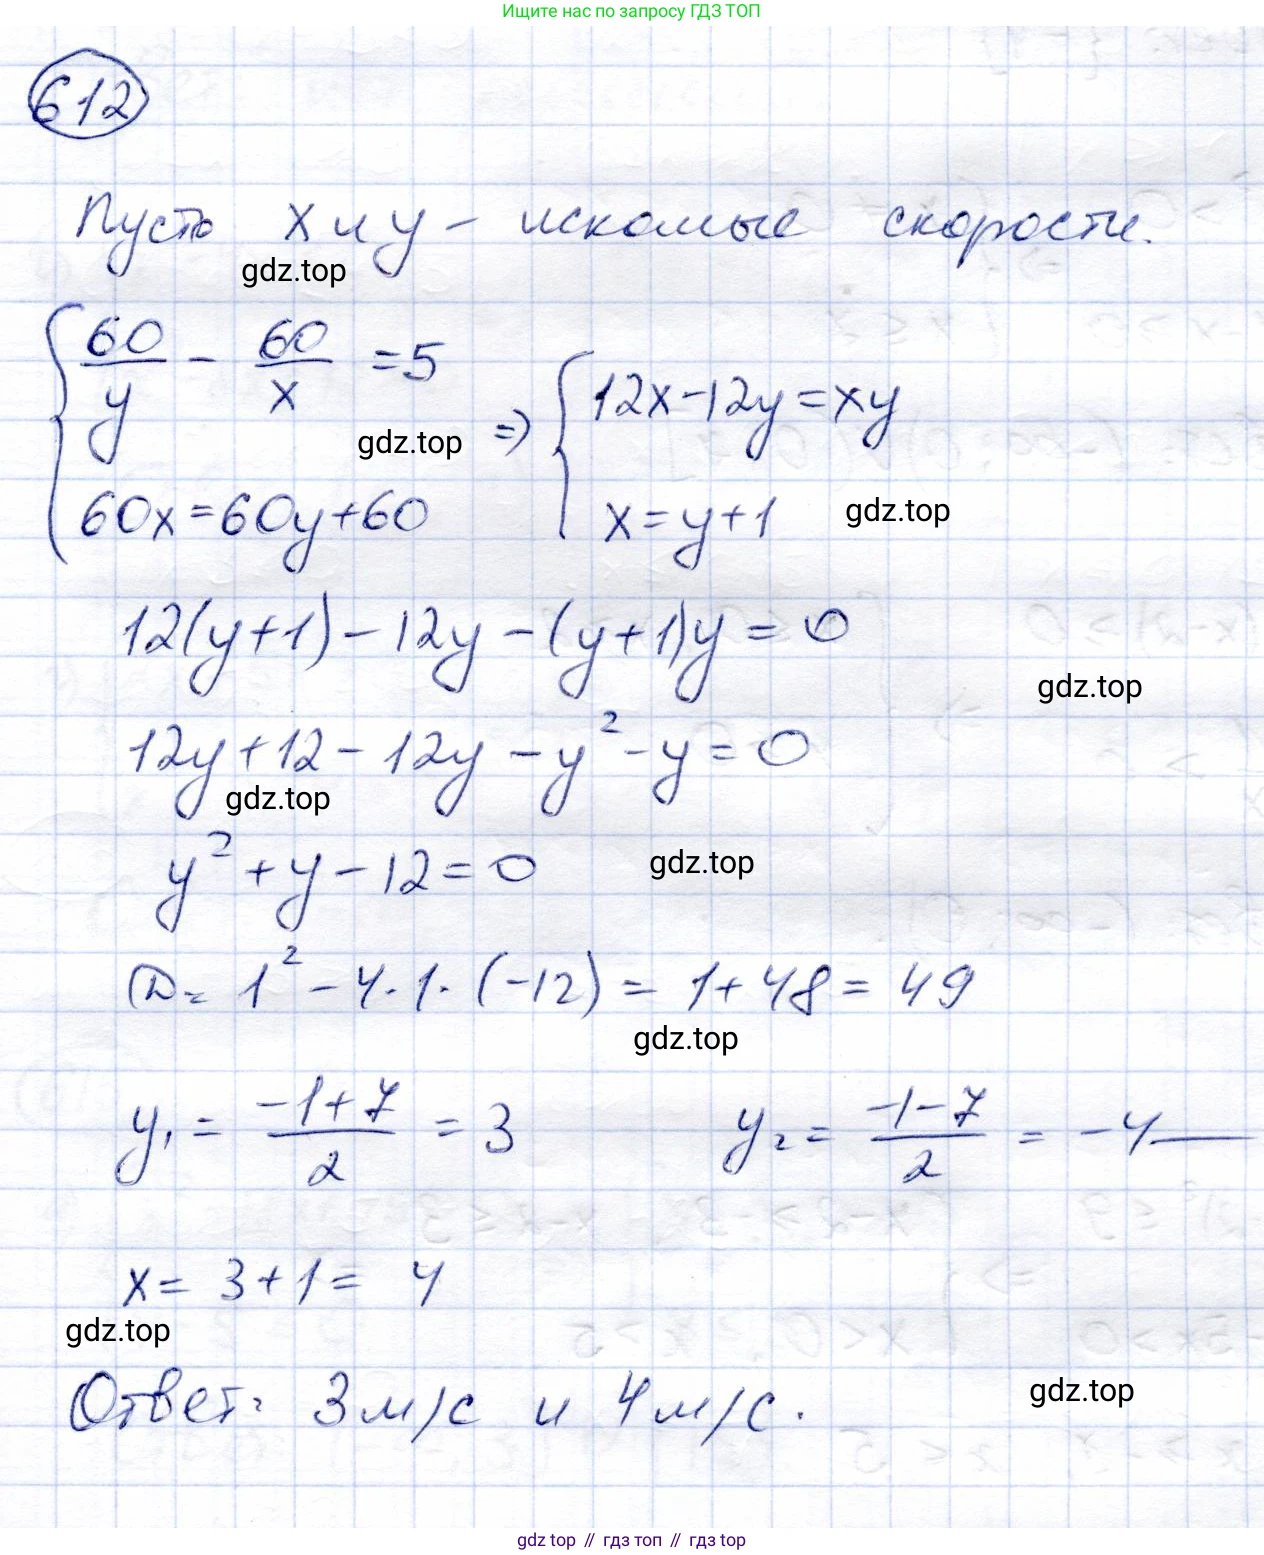 Ищите нас по запросу ГДЗ ТОП
612
Пусть x и y – искомые скорости.
gdz.top
{ 60/y - 60/x = 5
60x = 60y + 60
gdz.top
=> { 12x - 12y = xy
x = y + 1
gdz.top
12(y+1) - 12y - (y+1)y = 0
gdz.top
12y + 12 - 12y - y² - y = 0
gdz.top
y² + y - 12 = 0
gdz.top
D = 1² - 4·1·(-12) = 1 + 48 = 49
gdz.top
y₁ = (-1+7)/2 = 3 y₂ = (-1-7)/2 = -4 —
x = 3 + 1 = 4
gdz.top
Ответ: 3 м/с и 4 м/с.
gdz.top
gdz top // гдз топ // gdz top